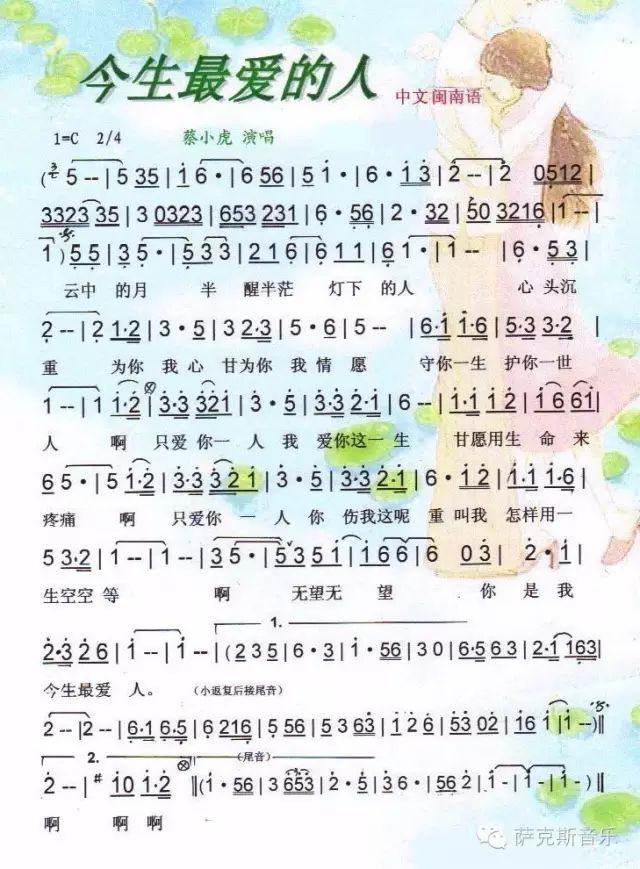 今生最爱的人 中文闽南语
1=C 2/4 蔡小虎 演唱
(5 -- | 5 35 | 1 6· | 6 56 | 5 1· | 6· 13 | 2 -- | 2 0512 |
3323 35 | 3 0323 | 653 231 | 6· 56 | 2· 32 | 50 3216 | 1 -- |
1 ) 5 5 | 3 5· | 5 3 3 | 2 1 6 | 6 1 1 | 6 1· | 1 -- | 6· 5 3 |
云中 的月 半 醒半茫 灯下 的人 心 头沉
2 -- | 2 1·2 | 3 · 5 | 3 2·3 | 5 · 6 | 5 -- | 6·1 1·6 | 5·3 3·2 |
重 为你 我 心 甘为你 我 情 愿 守你一生 护你一世
1 -- | 1 1·2 | 3·3 321 | 3 · 5 | 3·5 2·1 | 6 -- | 1·1 1 2 | 1 6 6 1 |
人 啊 只爱 你一 人 我 爱你这一 生 甘愿用生 命 来
6 5 · | 5 1·2 | 3·3 3 2 1 | 3 · 5 | 3·5 2·1 | 6 · 5 | 1·1 1·6 |
疼痛 啊 只爱你 一 人 你 伤我这呢 重 叫我 怎样用一
5 3·2 | 1 -- | 1 -- | 3 5 · | 5 3 5 1 | 1 6 6 | 6 0 3 | 2 · 1 |
生空空 等 啊 无望无 望 你 是 我
1.
2·3 2 6 | 1 -- | 1 -- | ( 2 3 5 | 6 · 3 | 1 · 56 | 1·2 3 | 6·5 6 3 | 2·1 163 |
今生最爱 人。 (小返复后接尾音)
2 -- | 2 -- | 6·1 6·5 | 6 216 | 5 56 | 5 3 63 | 1 · 6 | 2 · 6 | 53 02 | 16 1 | 1 -- ) ‖
2. (尾音)
2 -- | # 1 0 1·2 ‖ (1 · 56 | 3 653 | 3 · 6 | 2 · 6 | 5 · 32 | 1 - | 1 - | 1 - ) ‖
啊 啊 啊
萨克斯音乐